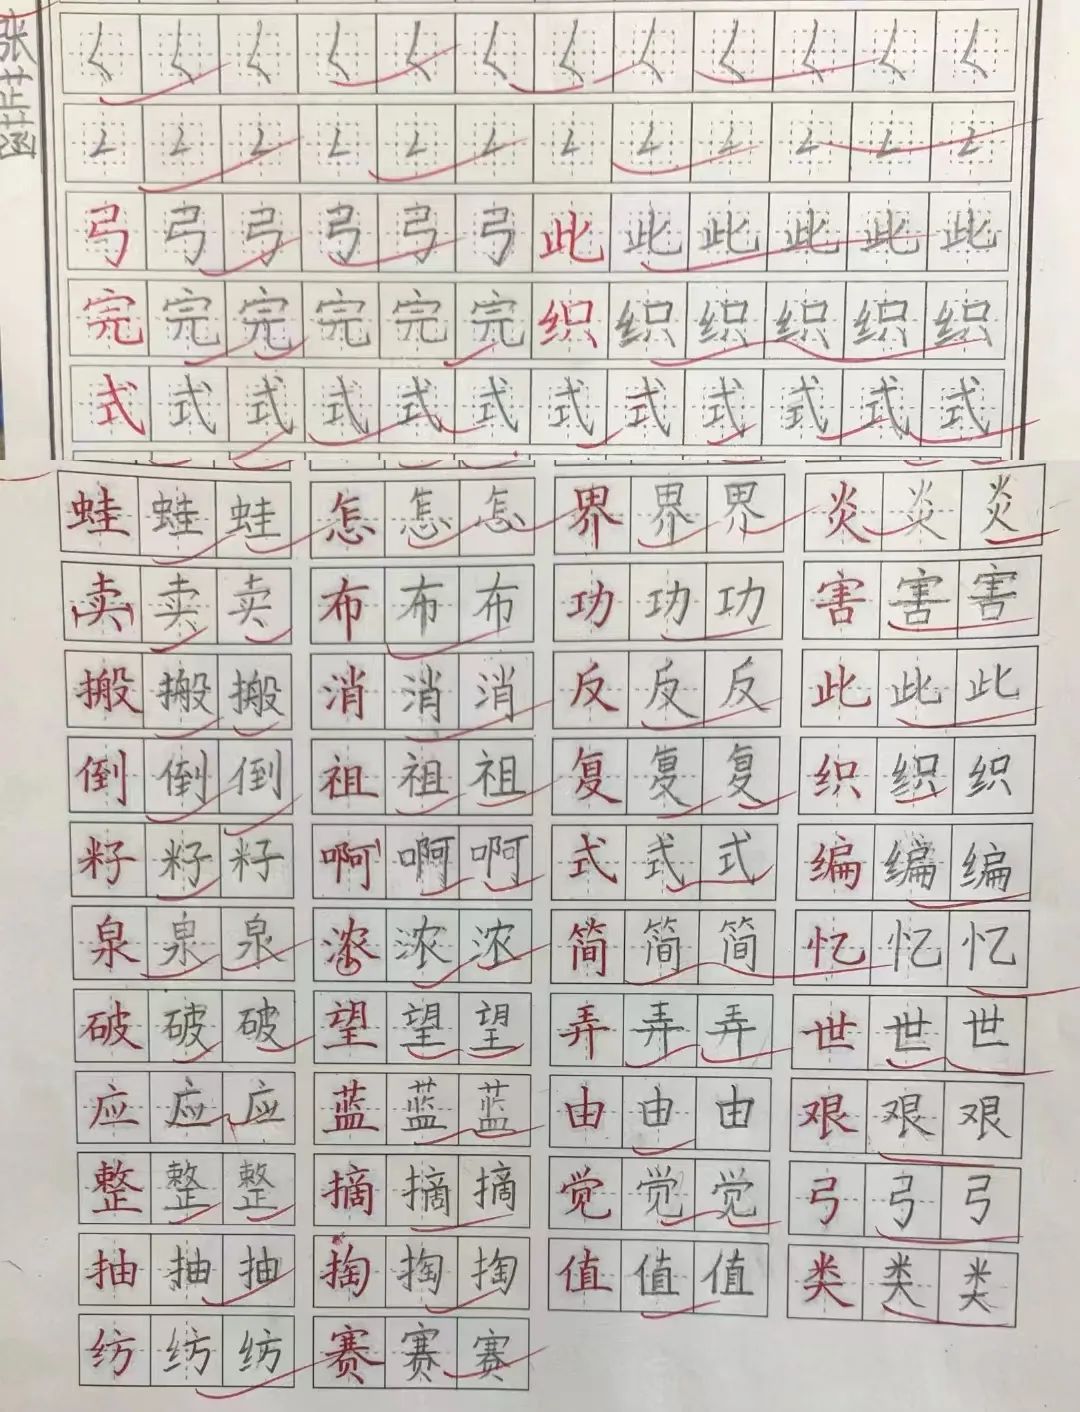 张芷菡
𡿨 𡿨 𡿨 𡿨 𡿨 𡿨 𡿨 𡿨 𡿨 𡿨 𡿨 𡿨
弓 弓 弓 弓 弓 弓 此 此 此 此 此 此
完 完 完 完 完 完 织 织 织 织 织 织
式 式 式 式 式 式 式 式 式 式 式 式
蛙 蛙 蛙 怎 怎 怎 界 界 界 炎 炎 炎
卖 卖 卖 布 布 布 功 功 功 害 害 害
搬 搬 搬 消 消 消 反 反 反 此 此 此
倒 倒 倒 祖 祖 祖 复 复 复 织 织 织
籽 籽 籽 啊 啊 啊 式 式 式 编 编 编
泉 泉 泉 浓 浓 浓 简 简 简 忆 忆 忆
破 破 破 望 望 望 弄 弄 弄 世 世 世
应 应 应 蓝 蓝 蓝 由 由 由 艰 艰 艰
整 整 整 摘 摘 摘 觉 觉 觉 弓 弓 弓
抽 抽 抽 掏 掏 掏 值 值 值 类 类 类
纺 纺 纺 赛 赛 赛